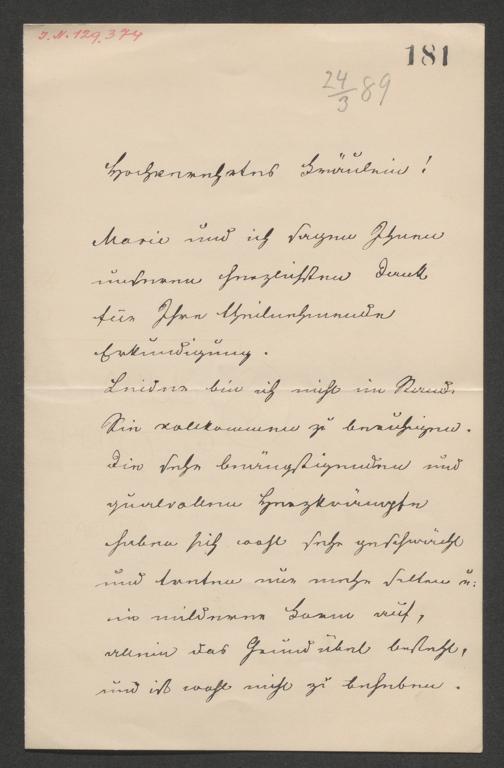 I.N. 129.374
181
24/3 89
Hochverehrtes Fräulein!
Marie und ich sagen Ihnen
unseren herzlichsten Dank
für Ihre theilnehmende
Erkundigung.
Leider bin ich nicht im Stande
Sie vollkommen zu beruhigen.
Die sehr beängstigenden und
qualvollen Herzkrämpfe
haben sich wohl sehr geschwächt
und treten nur mehr selten u:
in milderer Form auf,
allein das Grundübel besteht,
und ist wohl nicht zu beheben.